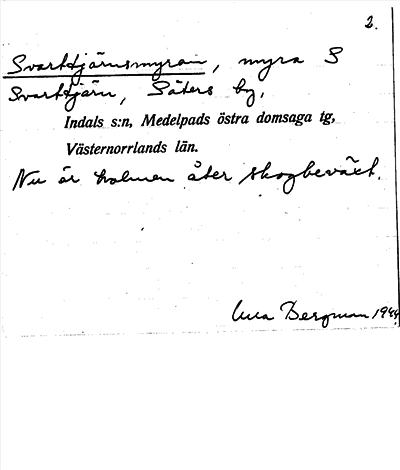 2.
Svarttjärnsmyran, myra S
Svarttjärn, Säters by,
Indals s:n, Medelpads östra domsaga tg,
Västernorrlands län.
Nu är holmen åter skogbeväxt.
Bergman 1944